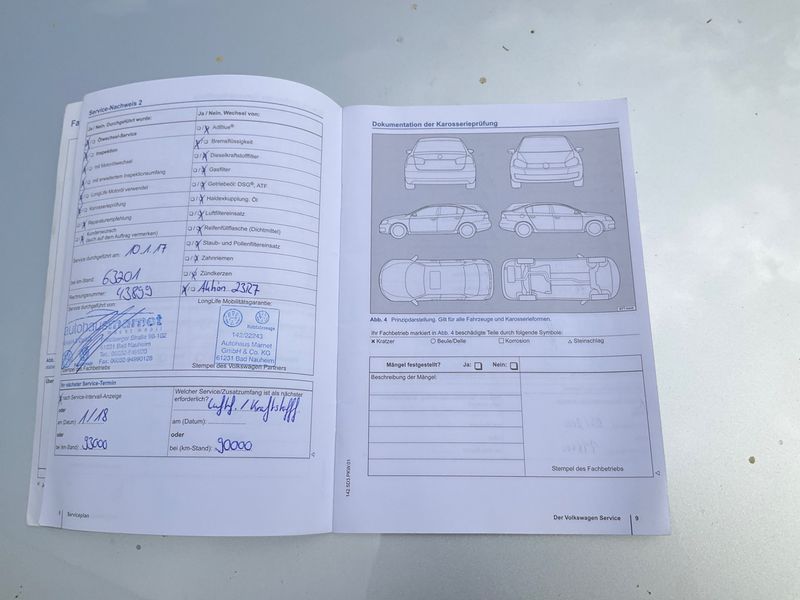 Fa
Service-Nachweis 2
Ja / Nein, Durchgeführt wurde:
Ölwechsel-Service
Inspektion
mit Motorölwechsel
mit erweitertem Inspektionsumfang
LongLife Motoröl verwendet
Karosserieprüfung
Reparaturempfehlung
Kundenwunsch
(auch auf dem Auftrag vermerken)
Service durchgeführt am: 10.1.17
bei km-Stand: 63201
Rechnungsnummer: 43899
Service durchgeführt von:
autohaus marnet
61231 Bad Nauheim
Stempel des Fachbetriebs
Ja / Nein, Wechsel von:
AdBlue®
Bremsflüssigkeit
Dieselkraftstofffilter
Gasfilter
Getriebeöl: DSG®, ATF
Haldexkupplung: Öl
Luftfiltereinsatz
Reifenfüllflasche (Dichtmittel)
Staub- und Pollenfiltereinsatz
Zahnriemen
Zündkerzen
Aktion 23R7
LongLife Mobilitätsgarantie:
Nutzfahrzeuge
142/22243
Autohaus Marnet
GmbH & Co. KG
61231 Bad Nauheim
Stempel des Volkswagen Partners
Ihr nächster Service-Termin
nach Service-Intervall-Anzeige
oder
am (Datum): 1/18
oder
bei km-Stand): 93000
Welcher Service/Zusatzumfang ist als nächster
erforderlich? Luftf. / Kraftstofff.
am (Datum):
oder
bei (km-Stand): 90000
Serviceplan
142.5D3.PKW.01
Dokumentation der Karosserieprüfung
Abb. 4 Prinzipdarstellung. Gilt für alle Fahrzeuge und Karosserieformen.
Ihr Fachbetrieb markiert in Abb. 4 beschädigte Teile durch folgende Symbole:
× Kratzer ○ Beule/Delle □ Korrosion △ Steinschlag
Mängel festgestellt? Ja: Nein:
Beschreibung der Mängel:
Stempel des Fachbetriebs
Der Volkswagen Service 9